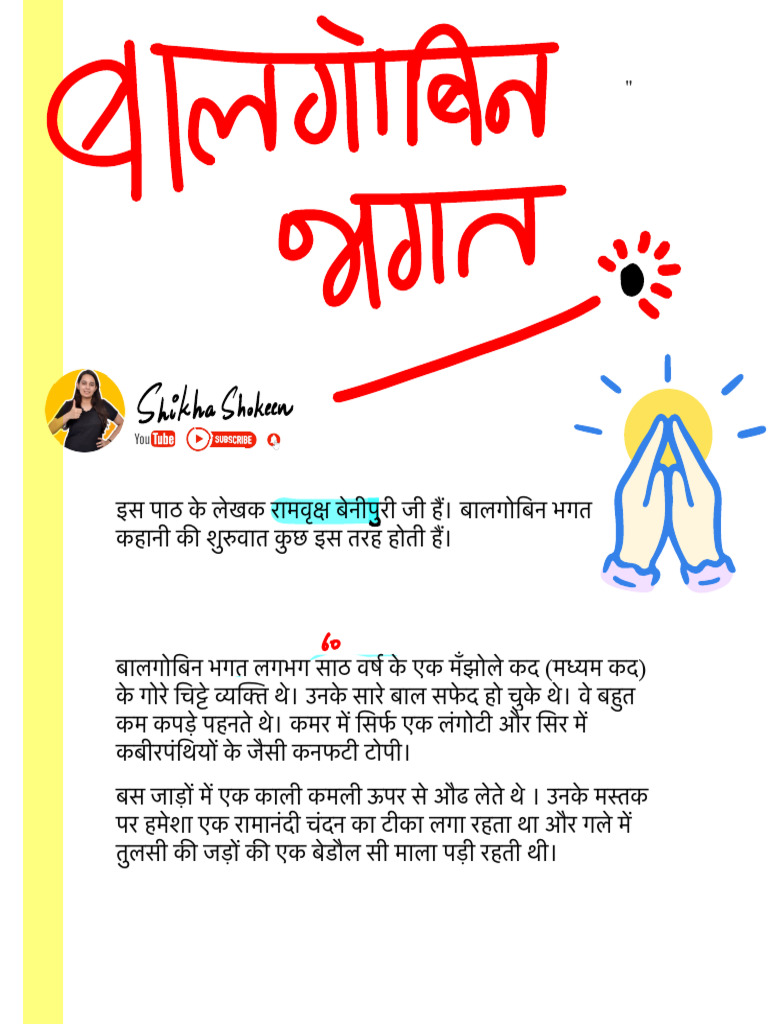 बालगोबिन
"
भगत
Shikha Shokeen
YouTube SUBSCRIBE
इस पाठ के लेखक रामवृक्ष बेनीपुरी जी हैं। बालगोबिन भगत
कहानी की शुरुवात कुछ इस तरह होती हैं।
60
बालगोबिन भगत लगभग साठ वर्ष के एक मँझोले कद (मध्यम कद)
के गोरे चिट्टे व्यक्ति थे। उनके सारे बाल सफेद हो चुके थे। वे बहुत
कम कपड़े पहनते थे। कमर में सिर्फ एक लंगोटी और सिर में
कबीरपंथियों के जैसी कनफटी टोपी।
बस जाड़ों में एक काली कमली ऊपर से औढ लेते थे । उनके मस्तक
पर हमेशा एक रामानंदी चंदन का टीका लगा रहता था और गले में
तुलसी की जड़ों की एक बेडौल सी माला पड़ी रहती थी।